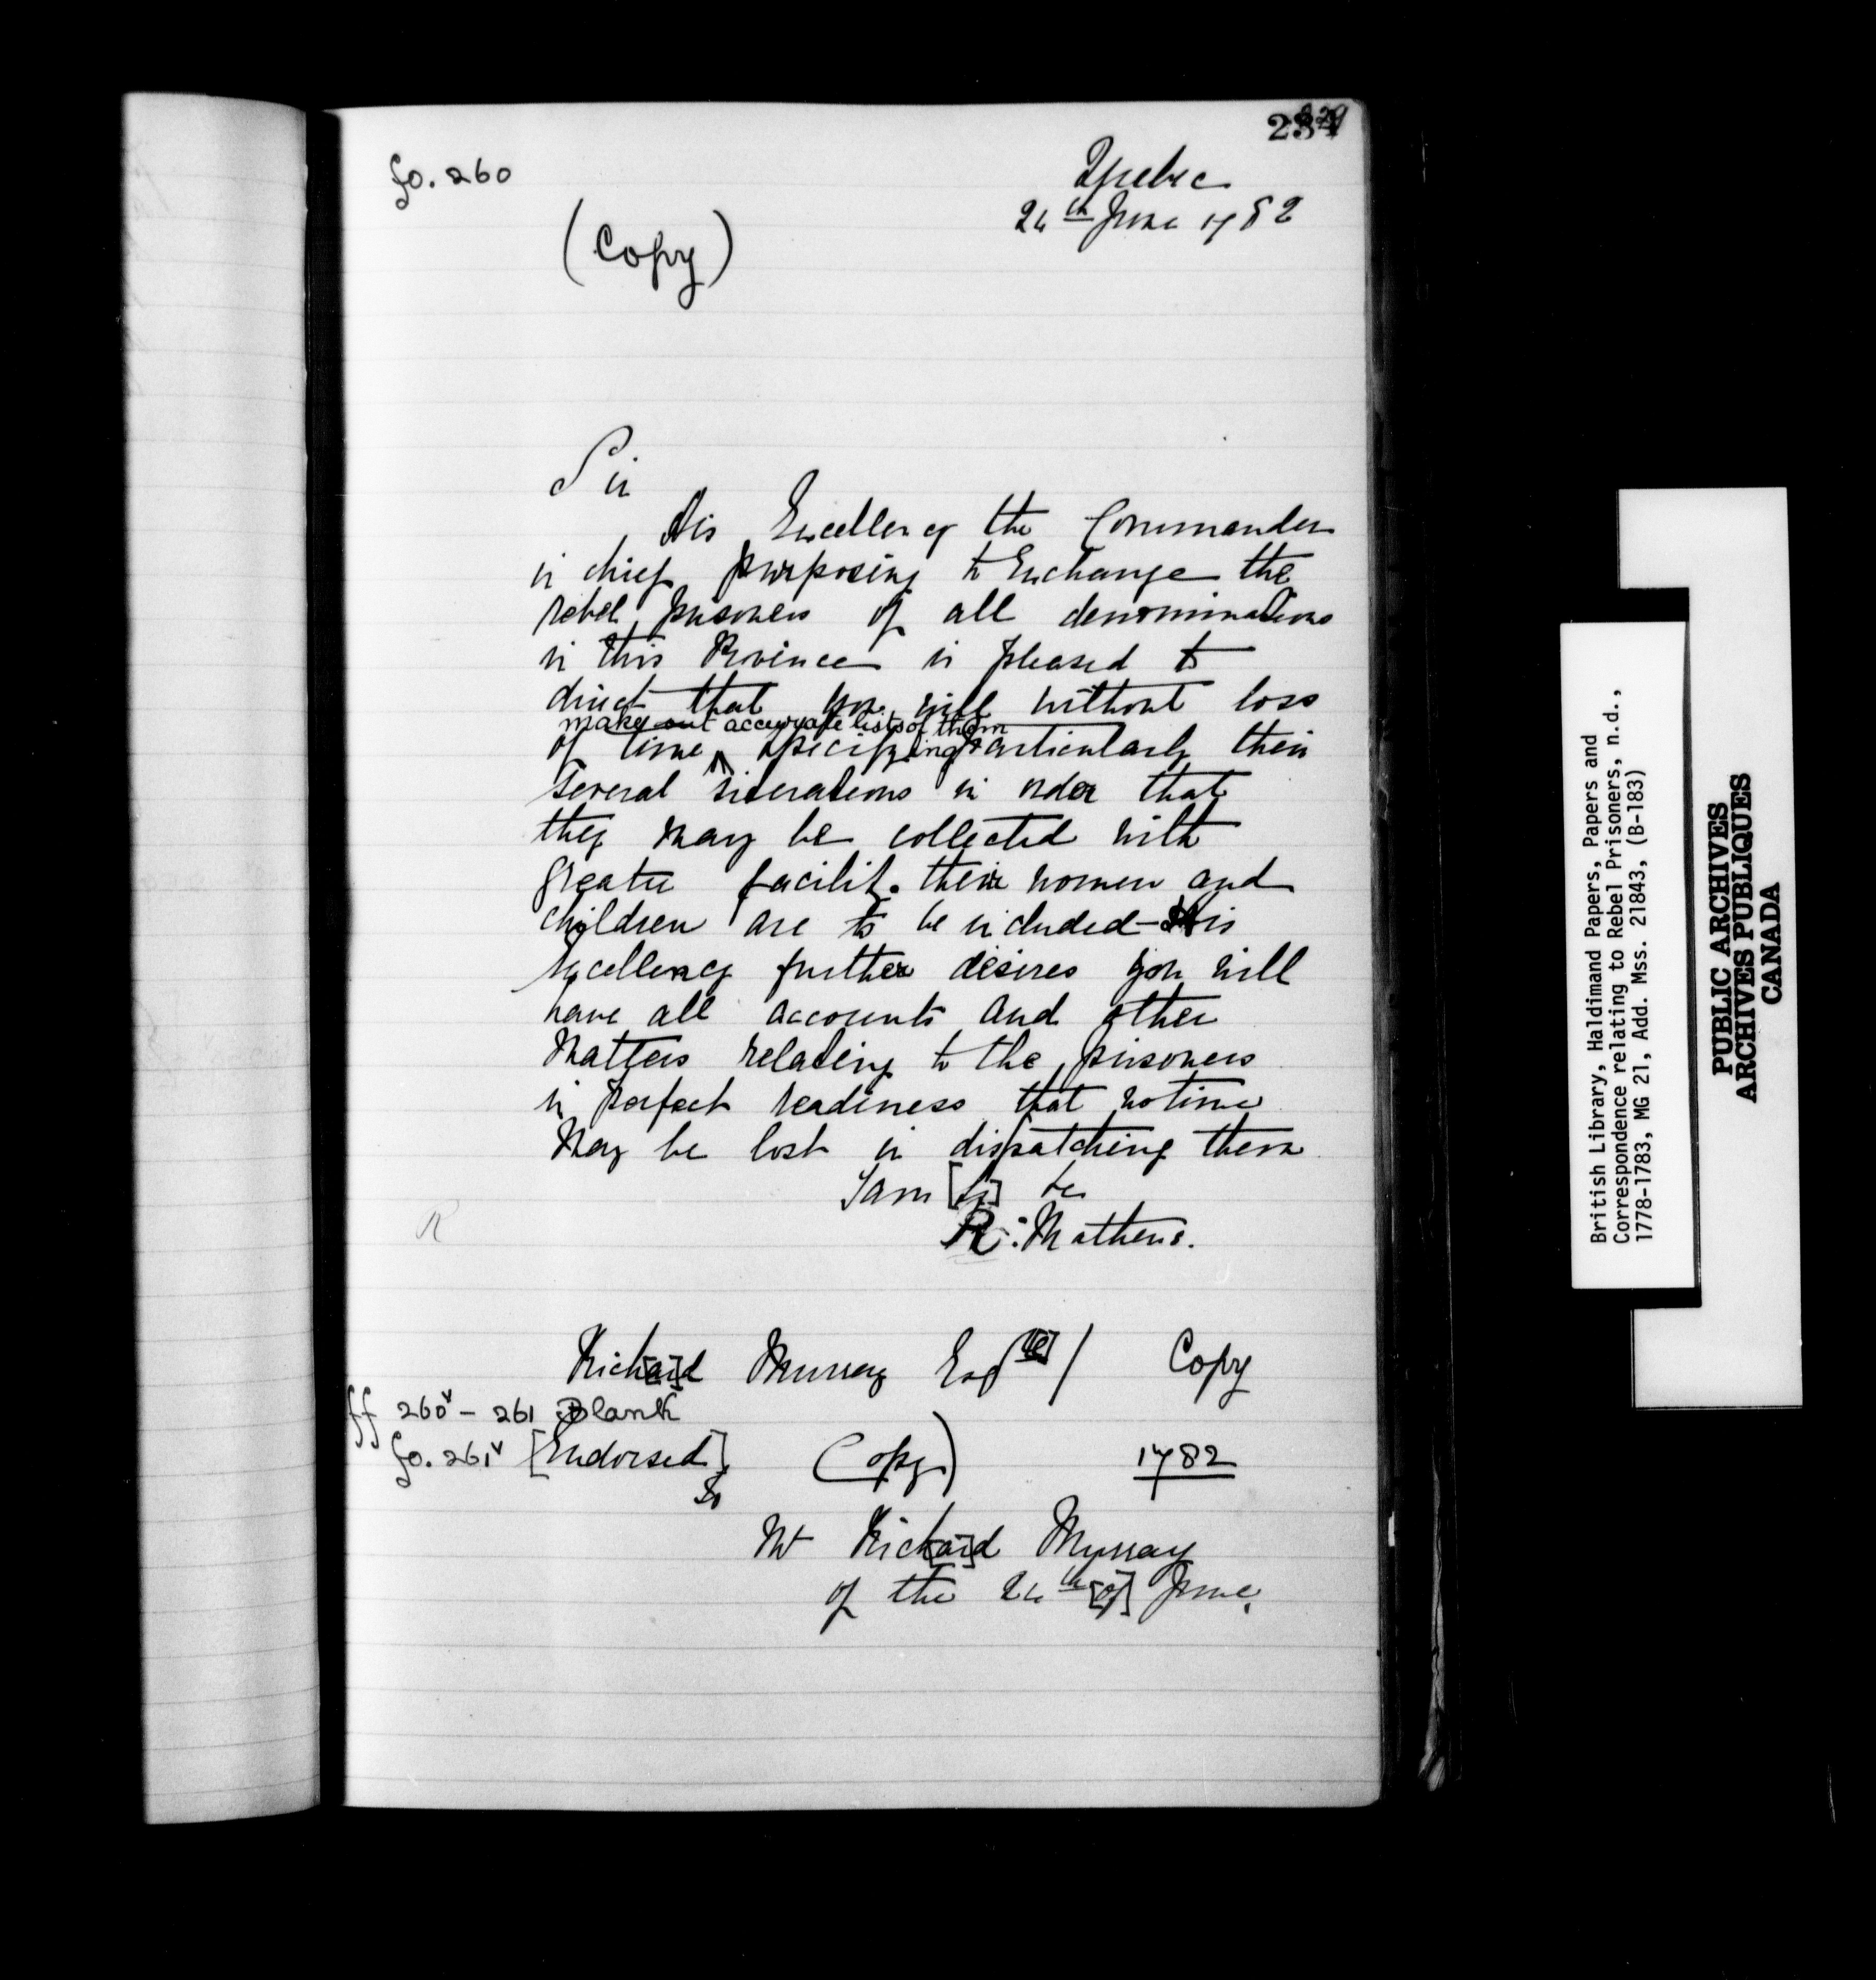 fo. 260
Quebec
24th June 1782
(Copy)
Sir
His Excellency the Commander
in chief purposing to Exchange the
rebel prisoners of all denominations
in this Province is pleased to
direct that you will without loss
make out accurate lists of them
of time ^ specifying particularly their
several situations in order that
they may be collected with
greater facilit. their women and
children are to be included - His
Excellency further desires you will
have all accounts and other
Matters relating to the prisoners
in perfect readiness that no time
May be lost in dispatching them
I am [Sir] &c
R: Mathews.
Richard Murray Esq[re] / Copy
ff 260v - 261 Blank
fo. 261v [Endorsed] (Copy) 1782
To
Mr Richard Murray
of the 24th [of] June.
British Library, Haldimand Papers, Papers and
Correspondence relating to Rebel Prisoners, n.d.,
1778-1783, MG 21, Add. Mss. 21843, (B-183)
PUBLIC ARCHIVES
ARCHIVES PUBLIQUES
CANADA